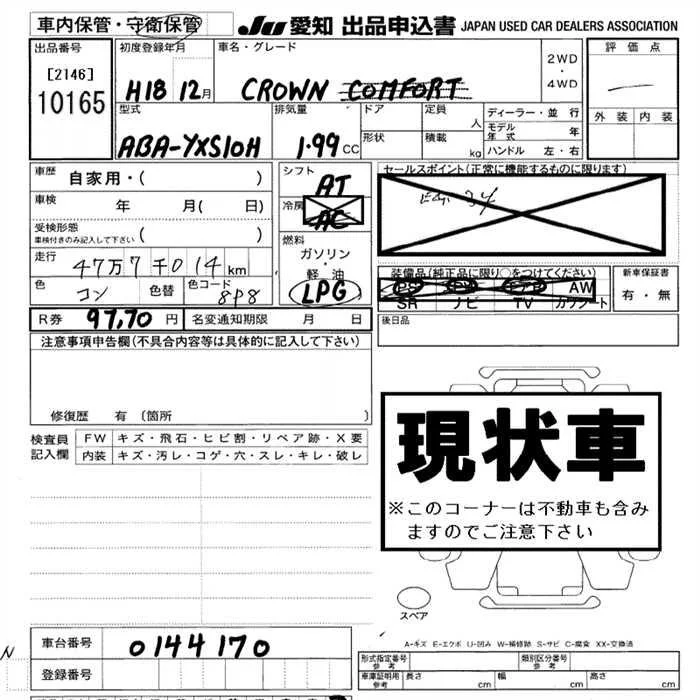 車内保管・守衛保管
JU 愛知 出品申込書 JAPAN USED CAR DEALERS ASSOCIATION
出品番号
[2146]
10165
初度登録年月
H18 12月
車名・グレード
CROWN COMFORT
2WD
・
4WD
評価点
外装 内装
型式
ABA-YXS10H
排気量
1.99 CC
ドア
形状
定員 人
積載 kg
ディーラー・並行
モデル年式 年
ハンドル 左・右
車歴 自家用・( )
車検 年 月( 日)
受検形態
車検付きのみ記入して下さい ( )
走行 47万7千014km
色 コン 色替 色コード 8P8
シフト AT
冷房 AC
燃料
ガソリン
・
軽油
LPG
セールスポイント(正常に機能するものに限ります)
装備品(純正品に限り○をつけてください)
PS PW エアB AW
SR ナビ TV カワシート
新車保証書
有・無
R券 97,70 円 名変通知期限 月 日
後日品
注意事項申告欄(不具合内容等は具体的に記入して下さい)
修復歴 有(箇所 )
検査員記入欄
FW キズ・飛石・ヒビ割・リペア跡・X要
内装 キズ・汚レ・コゲ・穴・スレ・キレ・破レ
現状車
※このコーナーは不動車も含み
ますのでご注意下さい
スペア
A-キズ E-エクボ U-凹み W-補修跡 S-サビ C-腐食 XX-交換済
N
車台番号 0144170
登録番号
形式指定番号 参考
類別区分番号 参考
車庫証明用 参考 長さ cm 幅 cm 高さ cm